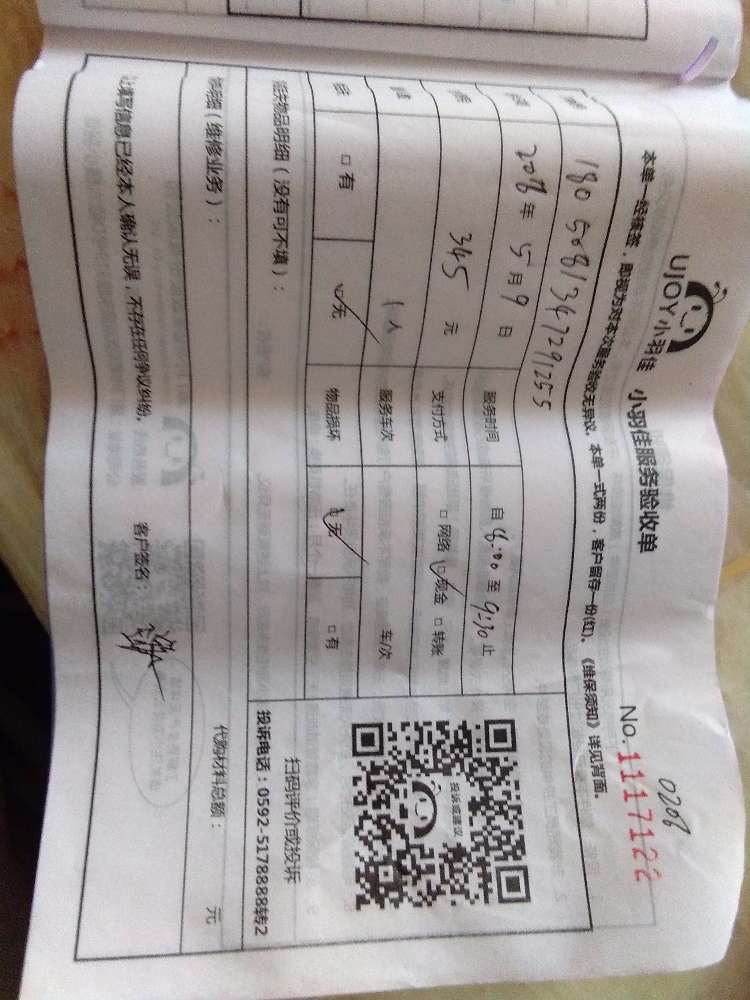 UJOY小羽佳 小羽佳服务验收单
0208
No. 1117122
本单一经接签，即视为对本次服务验收无异议。本单一式两份，客户留存一份(红)。《维保须知》详见背面。
1805081347291255
年 5月9日 服务时间 自 8:00 至 9:30 止
345 元 支付方式 □ 网络 □ 现金 □ 转账
1人 服务车次 车/次
□ 有 □ 无 物品损坏 □ 无 □ 有
物品明细（没有可不填）：
投诉或建议
扫码评价或投诉
投诉电话：0592-5178888转2
明细（维修业务）：
代购材料总额： 元
填写信息已经本人确认无误，不存在任何争议纠纷。 客户签名：